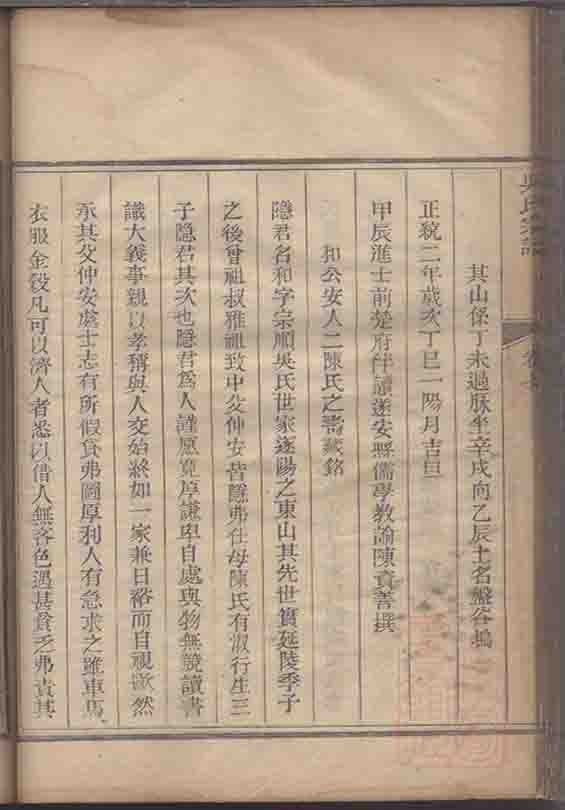 吳氏宗譜
卷七
其山係丁未過脉坐辛戌向乙辰土名盤谷塢
正統二年歲次丁巳一陽月吉旦
甲辰進士前楚府伴讀遂安縣儒學教諭陳資善撰
和公安人二陳氏之壽藏銘
隱君名和字宗順吳氏世家遂陽之東山其先世實延陵季子
之後曾祖叔雅祖致中父仲安皆隱弗仕母陳氏有淑行生三
子隱君其次也隱君為人謹愿寬厚謙卑自處與物無競讀書
識大義事親以孝稱與人交始終如一家兼日裕而自視歉然
承其父仲安處士志有所假貸弗圖厚利人有急求之雖車馬
衣服金穀凡可以濟人者悉以借人無吝色遇甚貧乏弗責其